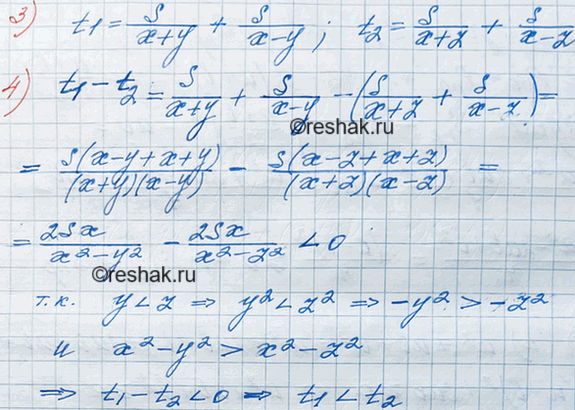 3) t1 = S/(x+y) + S/(x-y); t2 = S/(x+z) + S/(x-z)
4) t1 - t2 = S/(x+y) + S/(x-y) - (S/(x+z) + S/(x-z)) =
©reshak.ru
= S(x-y+x+y)/((x+y)(x-y)) - S(x-z+x+z)/((x+z)(x-z)) =
= 2Sx/(x²-y²) - 2Sx/(x²-z²) < 0
©reshak.ru
т.к. y < z ⇒ y² < z² ⇒ -y² > -z²
и x²-y² > x²-z²
⇒ t1 - t2 < 0 ⇒ t1 < t2